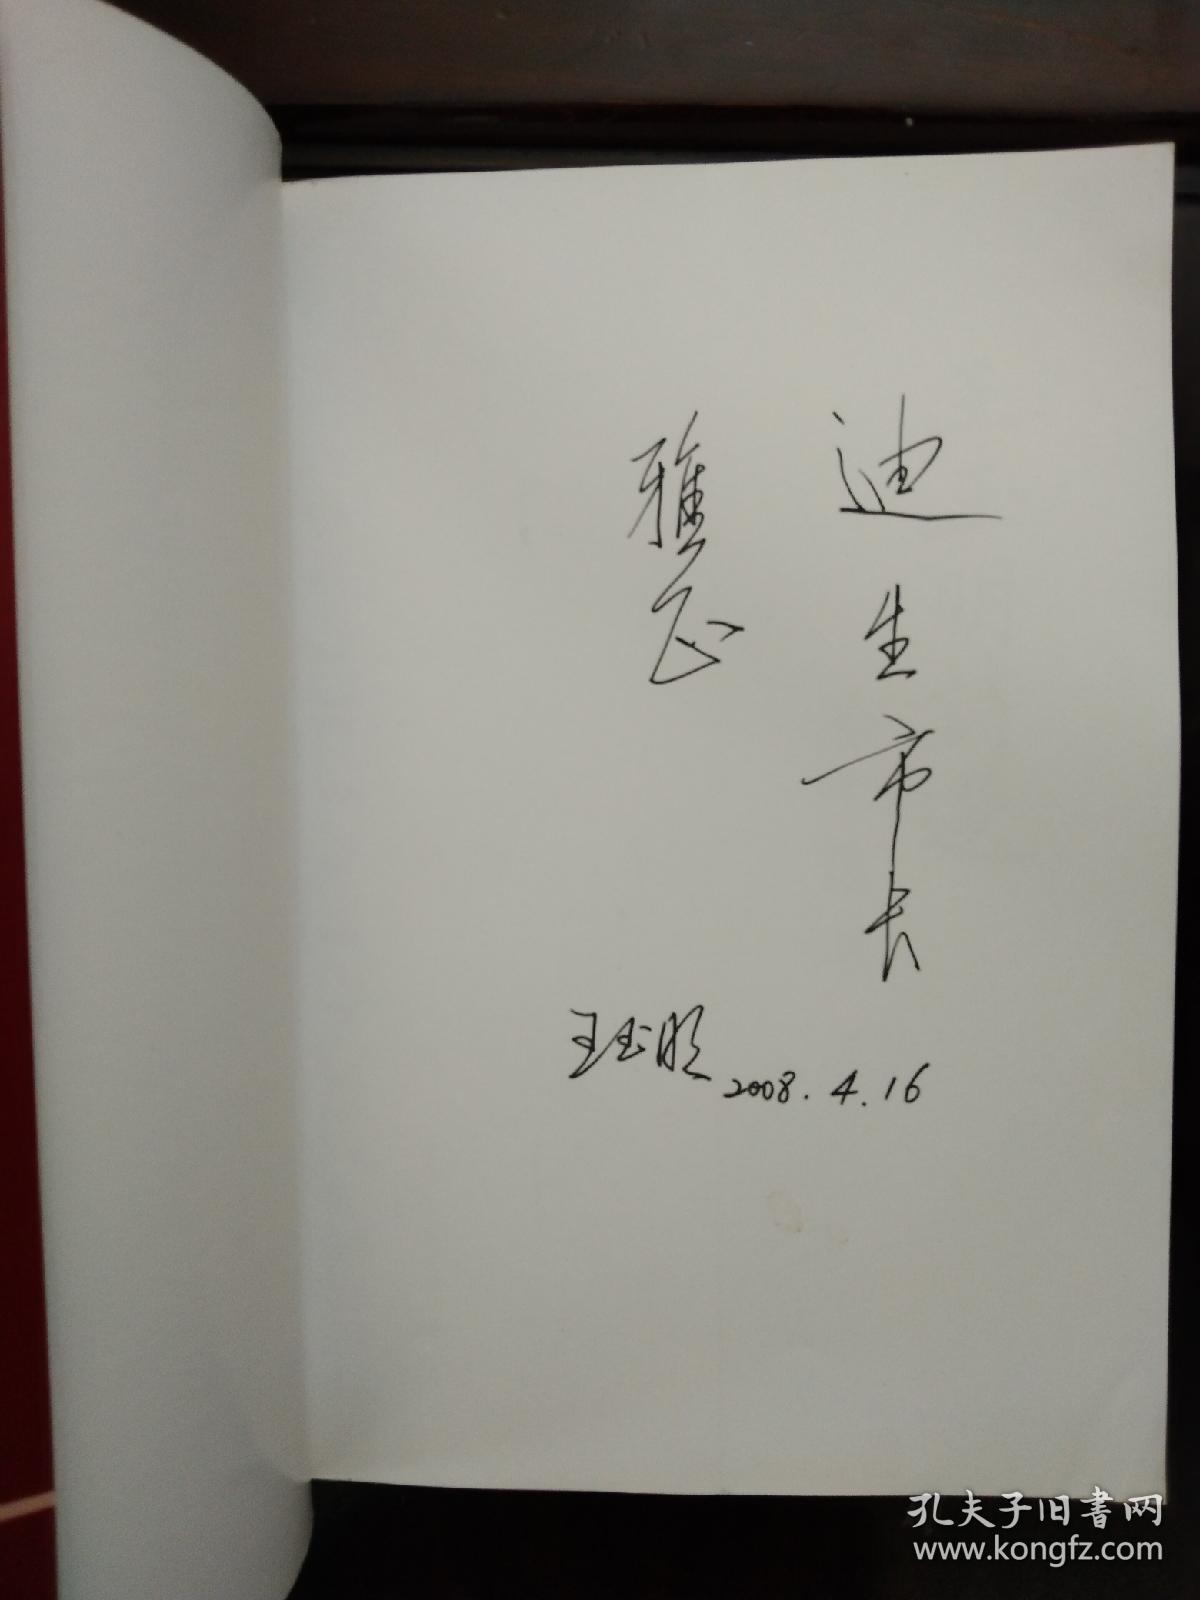 迪生市长
雅正
王玉明
2008.4.16
孔夫子旧书网
www.kongfz.com